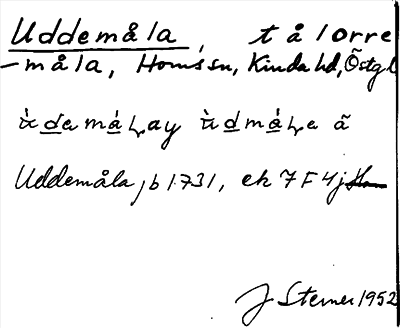 Uddemåla, tålorre
-måla, Horns sn, Kinda hd, Östgl
ùdamálay ùdmála ã
Uddemåla jb 1731, ek 7F4j
J Sterner 1952